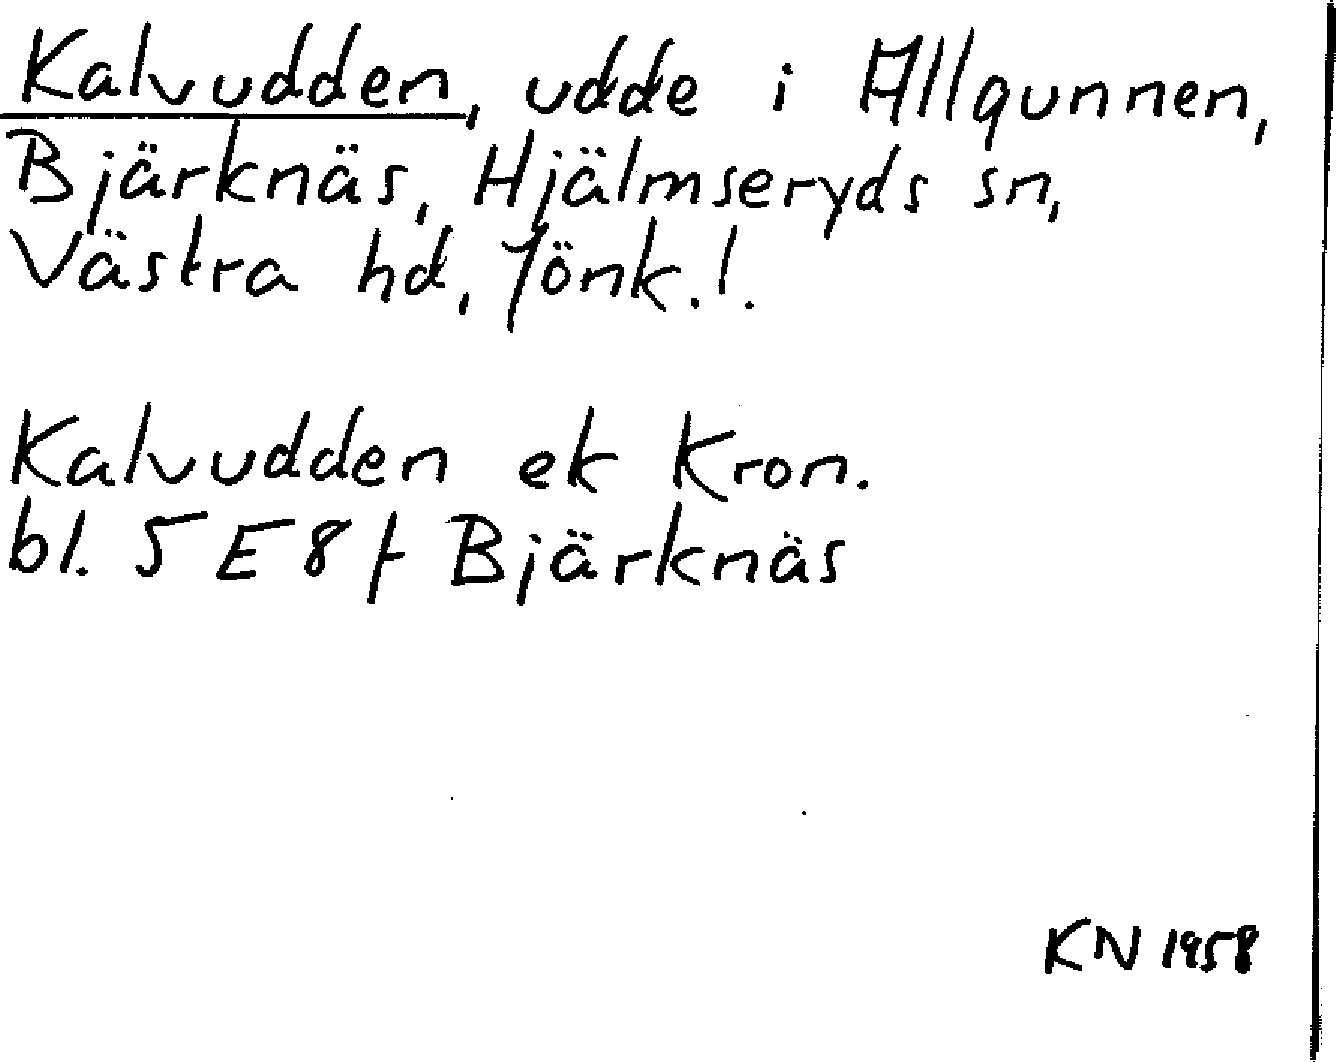 Kalvudden, udde i Allgunnen,
Bjärknäs, Hjälmseryds sn,
Västra hd, Jönk. l.
Kalvudden ek Kron.
bl. 5 E 8 f Bjärknäs
KN 1958